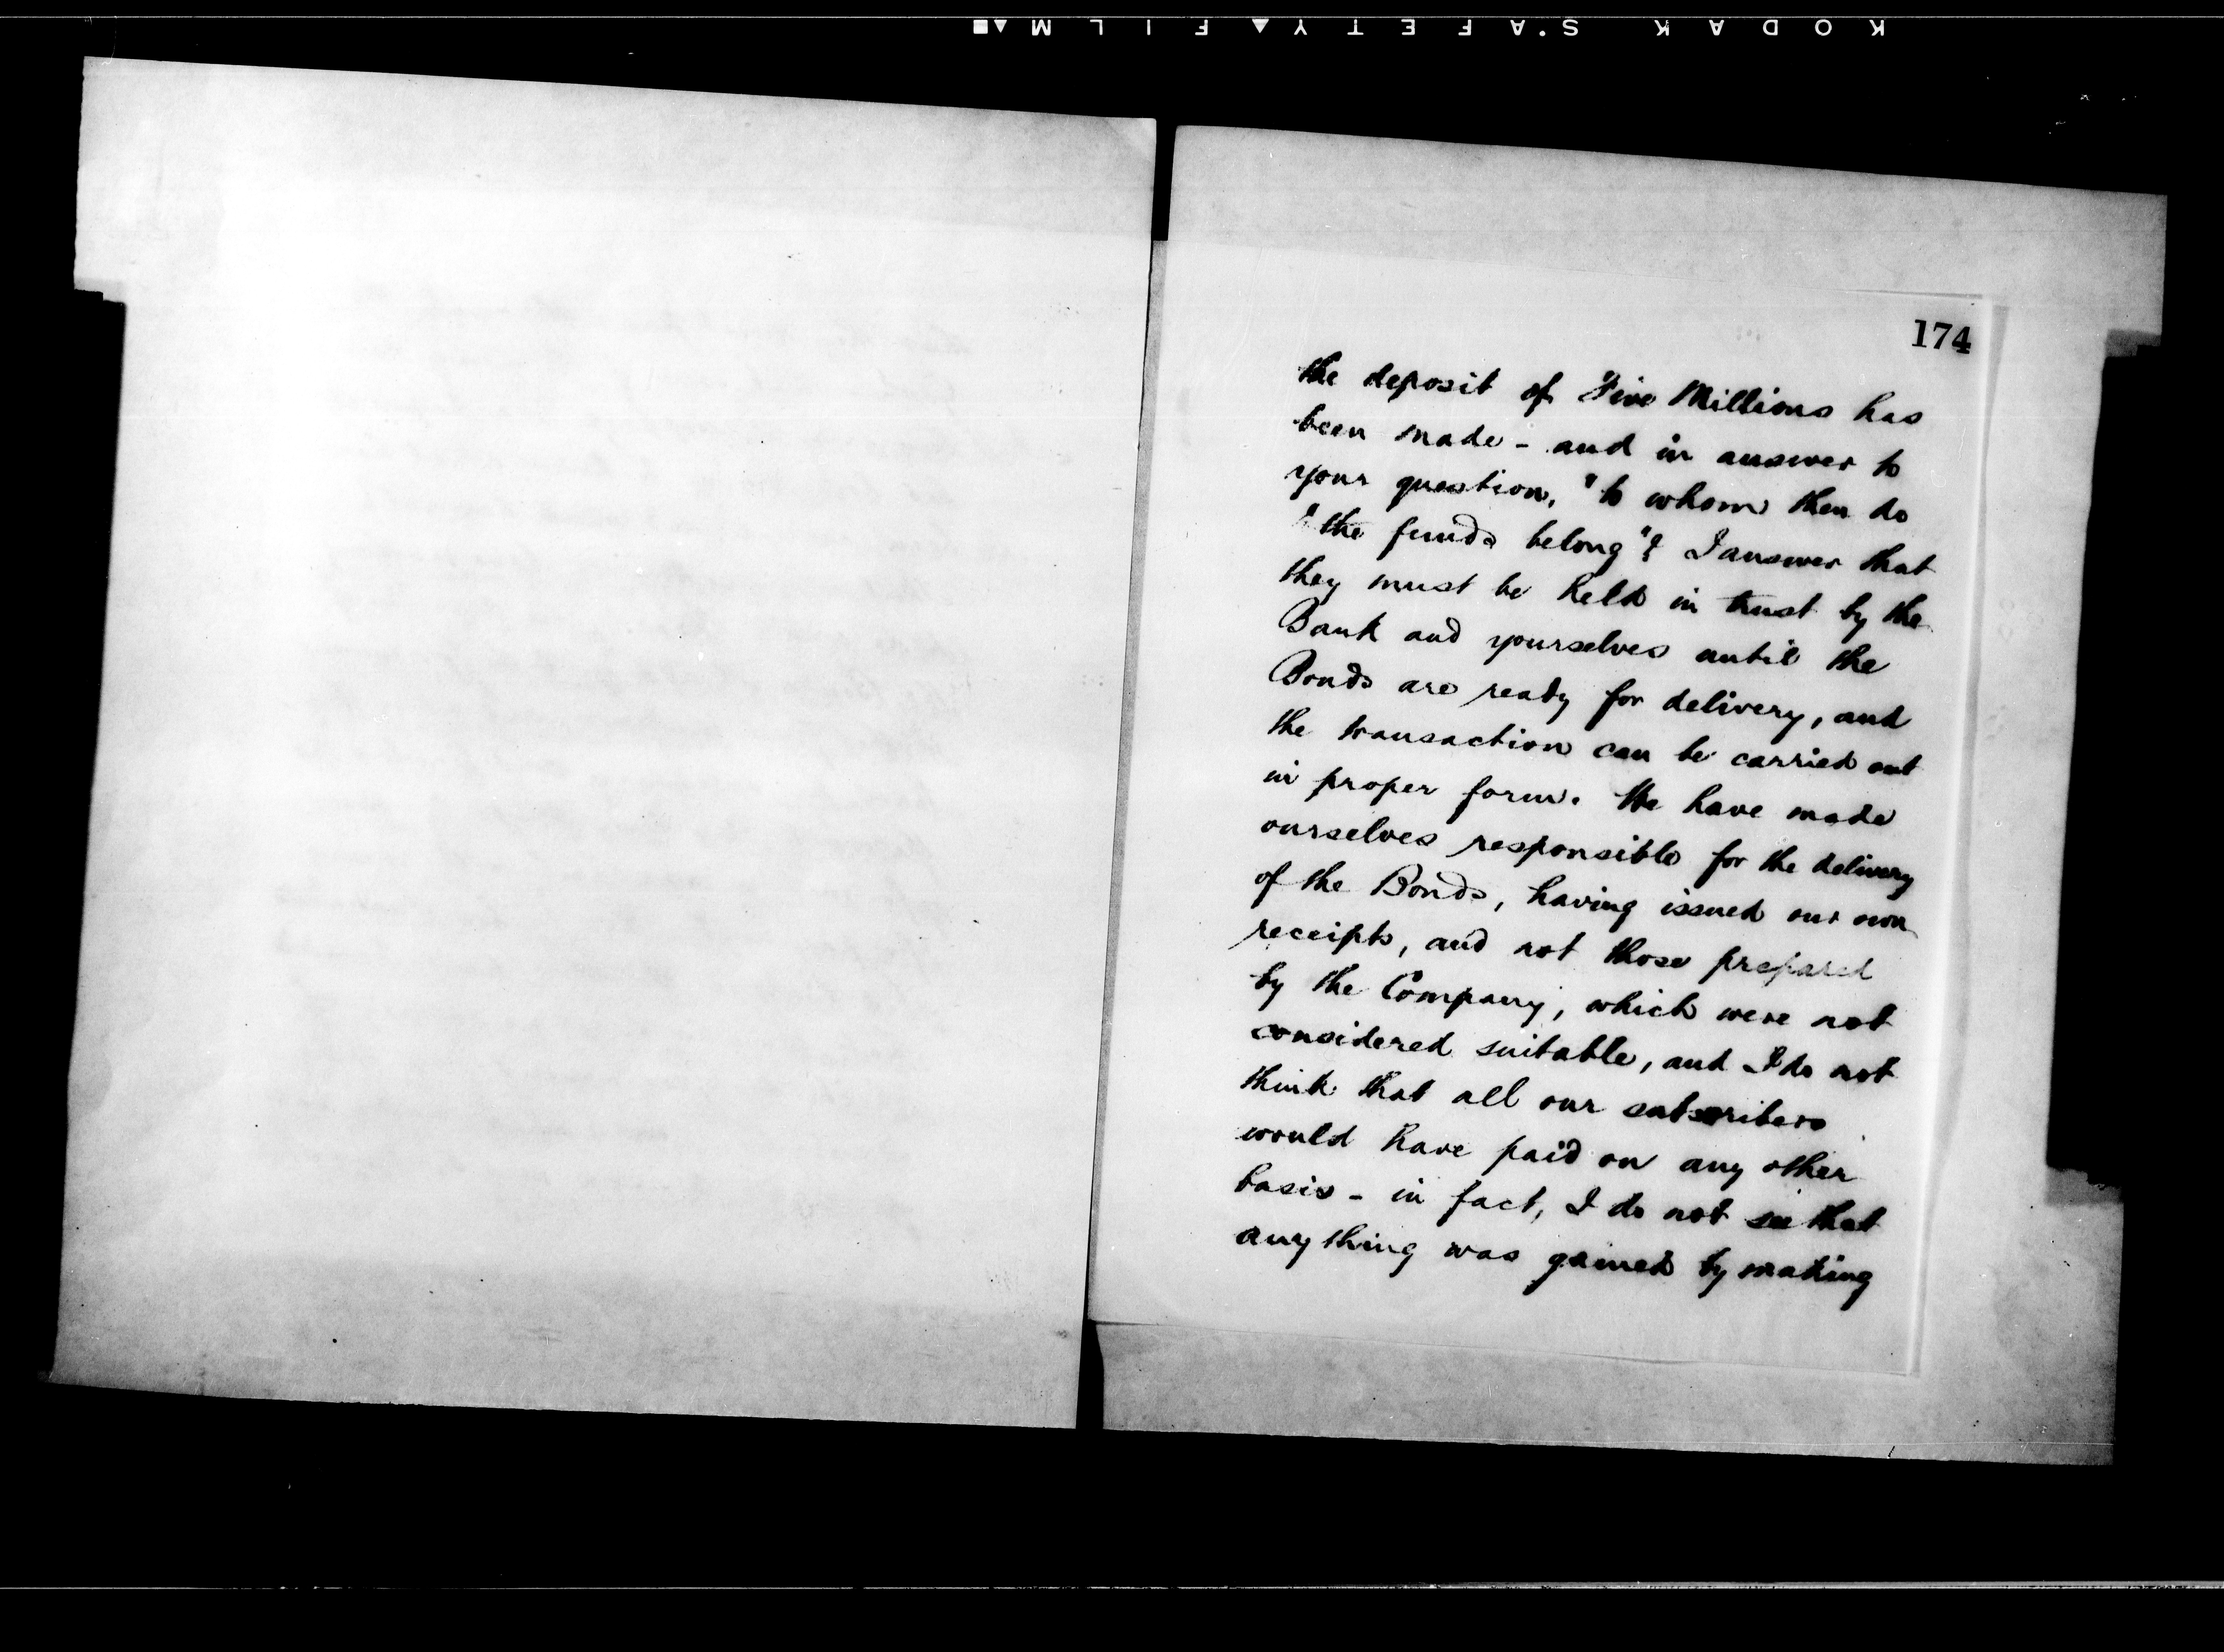 KODAK SAFETY FILM
174
the deposit of Five Millions has
been made - and in answer to
your question, "to whom then do
"the funds belong"? I answer that
they must be held in trust by the
Bank and yourselves until the
Bonds are ready for delivery, and
the transaction can be carried out
in proper form. We have made
ourselves responsible for the delivery
of the Bonds, having issued our own
receipts, and not those prepared
by the Company, which were not
considered suitable, and I do not
think that all our subscribers
would have paid on any other
basis - in fact, I do not see that
anything was gained by making